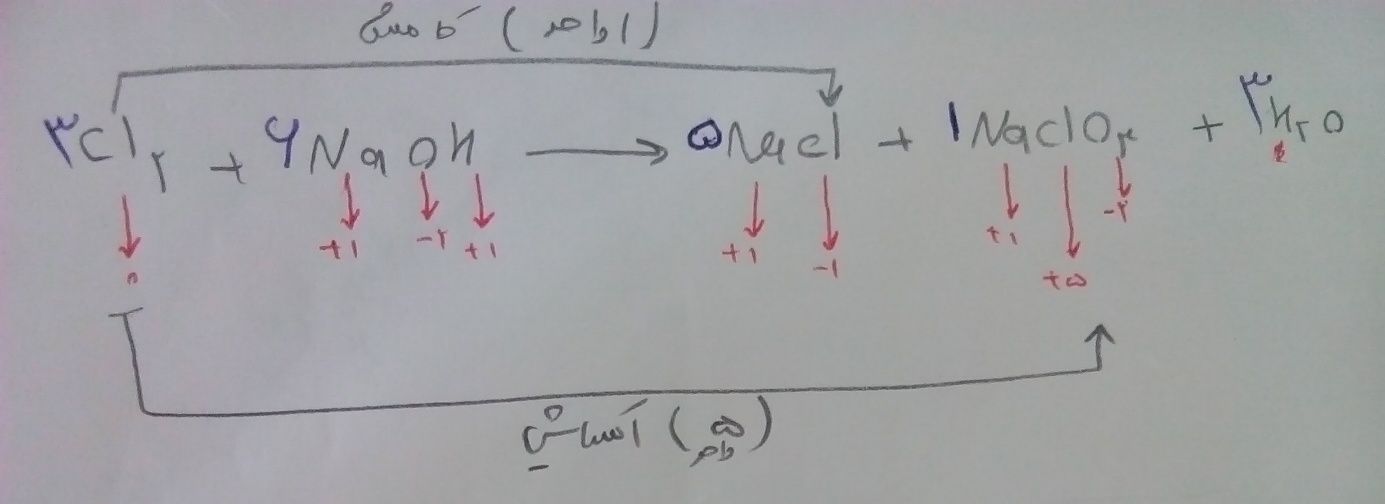 کاهش (۱ واحد)
۳Cl۲ + ۶NaOH → ۵NaCl + ۱NaClO۳ + ۳H۲O
۰ +۱ -۲ +۱ +۱ -۱ +۱ +۵ -۲
اکسایش (۵ واحد)